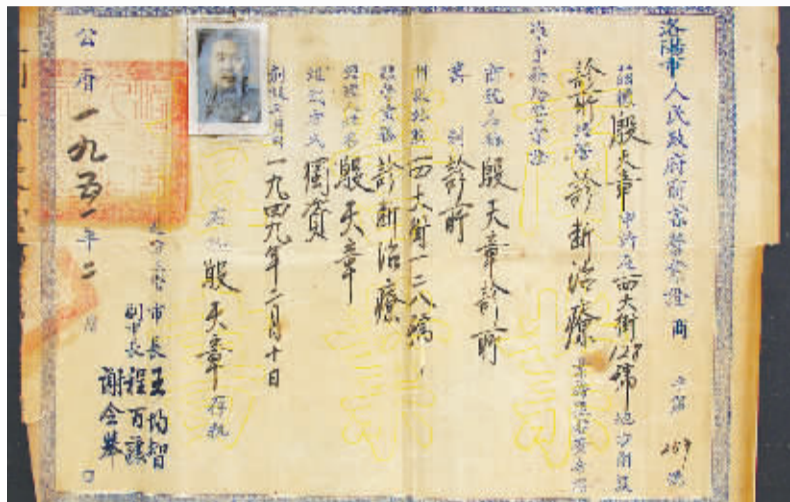 洛陽市人民政府商業營業證 商字第259號
茲據殷天章申請在西大街128號地方開設
診所經營診斷治療業務
商號名稱 殷天章診所
類別 診所
開設地點 西大街一二八號
經營業務 診斷治療
經理人姓名 殷天章
組織方式 獨資
創設年月日 一九四九年二月十日
右給殷天章存執
市長 王均智
副市長 程百讓
謝金舉
公曆一九五一年二月 日